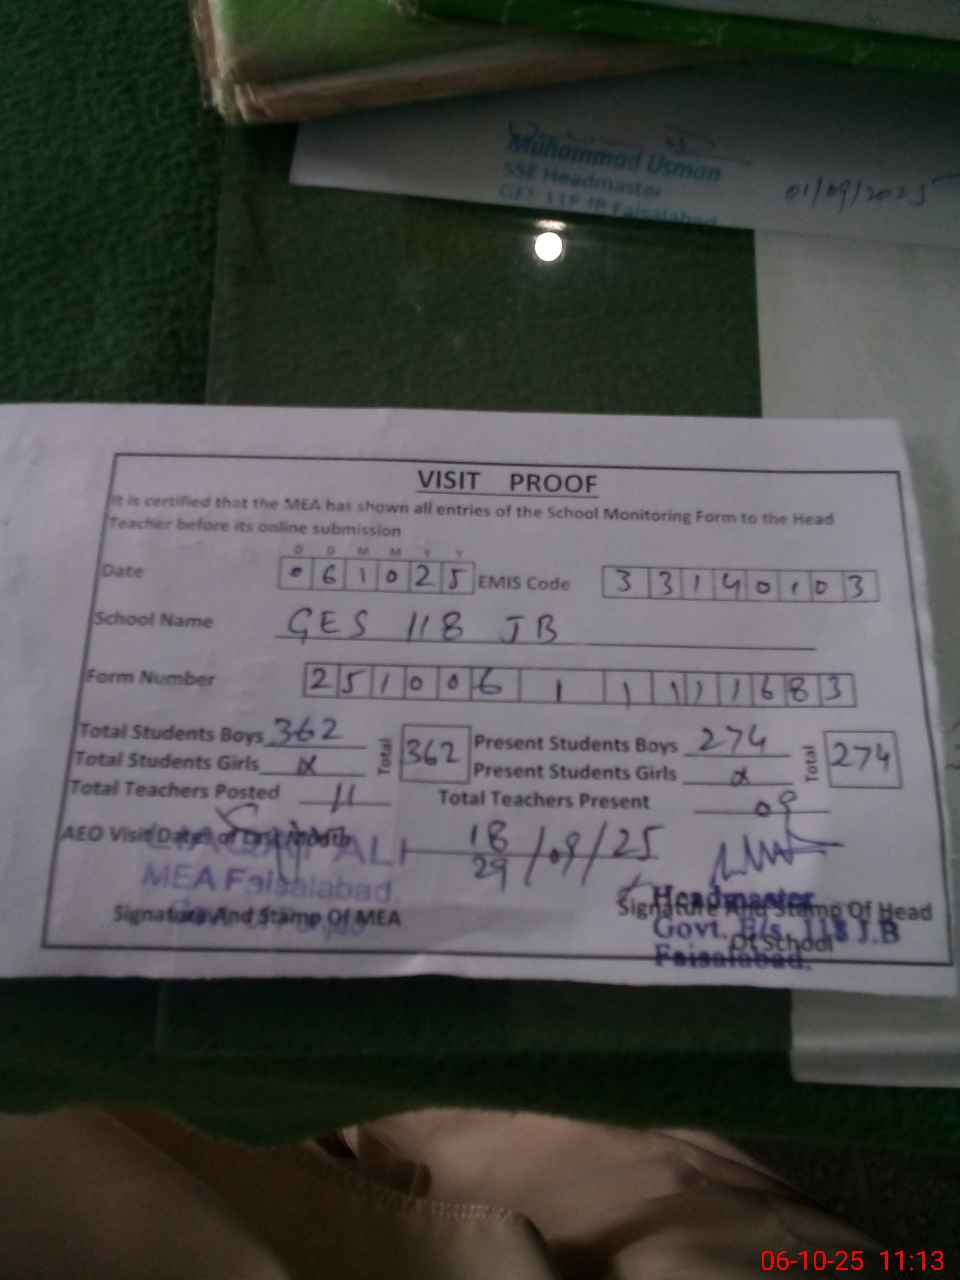 Muhammad Usman
SSE Headmaster
GES 118 JB Faisalabad
01/09/2025
VISIT PROOF
It is certified that the MEA has shown all entries of the School Monitoring Form to the Head
Teacher before its online submission
D D M M Y Y
Date 061025 EMIS Code 33140103
School Name GES 118 JB
Form Number 251006 1 1 1 1 1 1683
Total Students Boys 362 Total 362 Present Students Boys 274 Total 274
Total Students Girls x Present Students Girls x
Total Teachers Posted 11 Total Teachers Present 09
AEO Visit Dates of Last Month 18/29/09/25
ALI
MEA Faisalabad
Signature And Stamp Of MEA
Signature And Stamp Of Head
Of School
Headmaster
Govt. E/s. 118 J.B
Faisalabad.
06-10-25 11:13